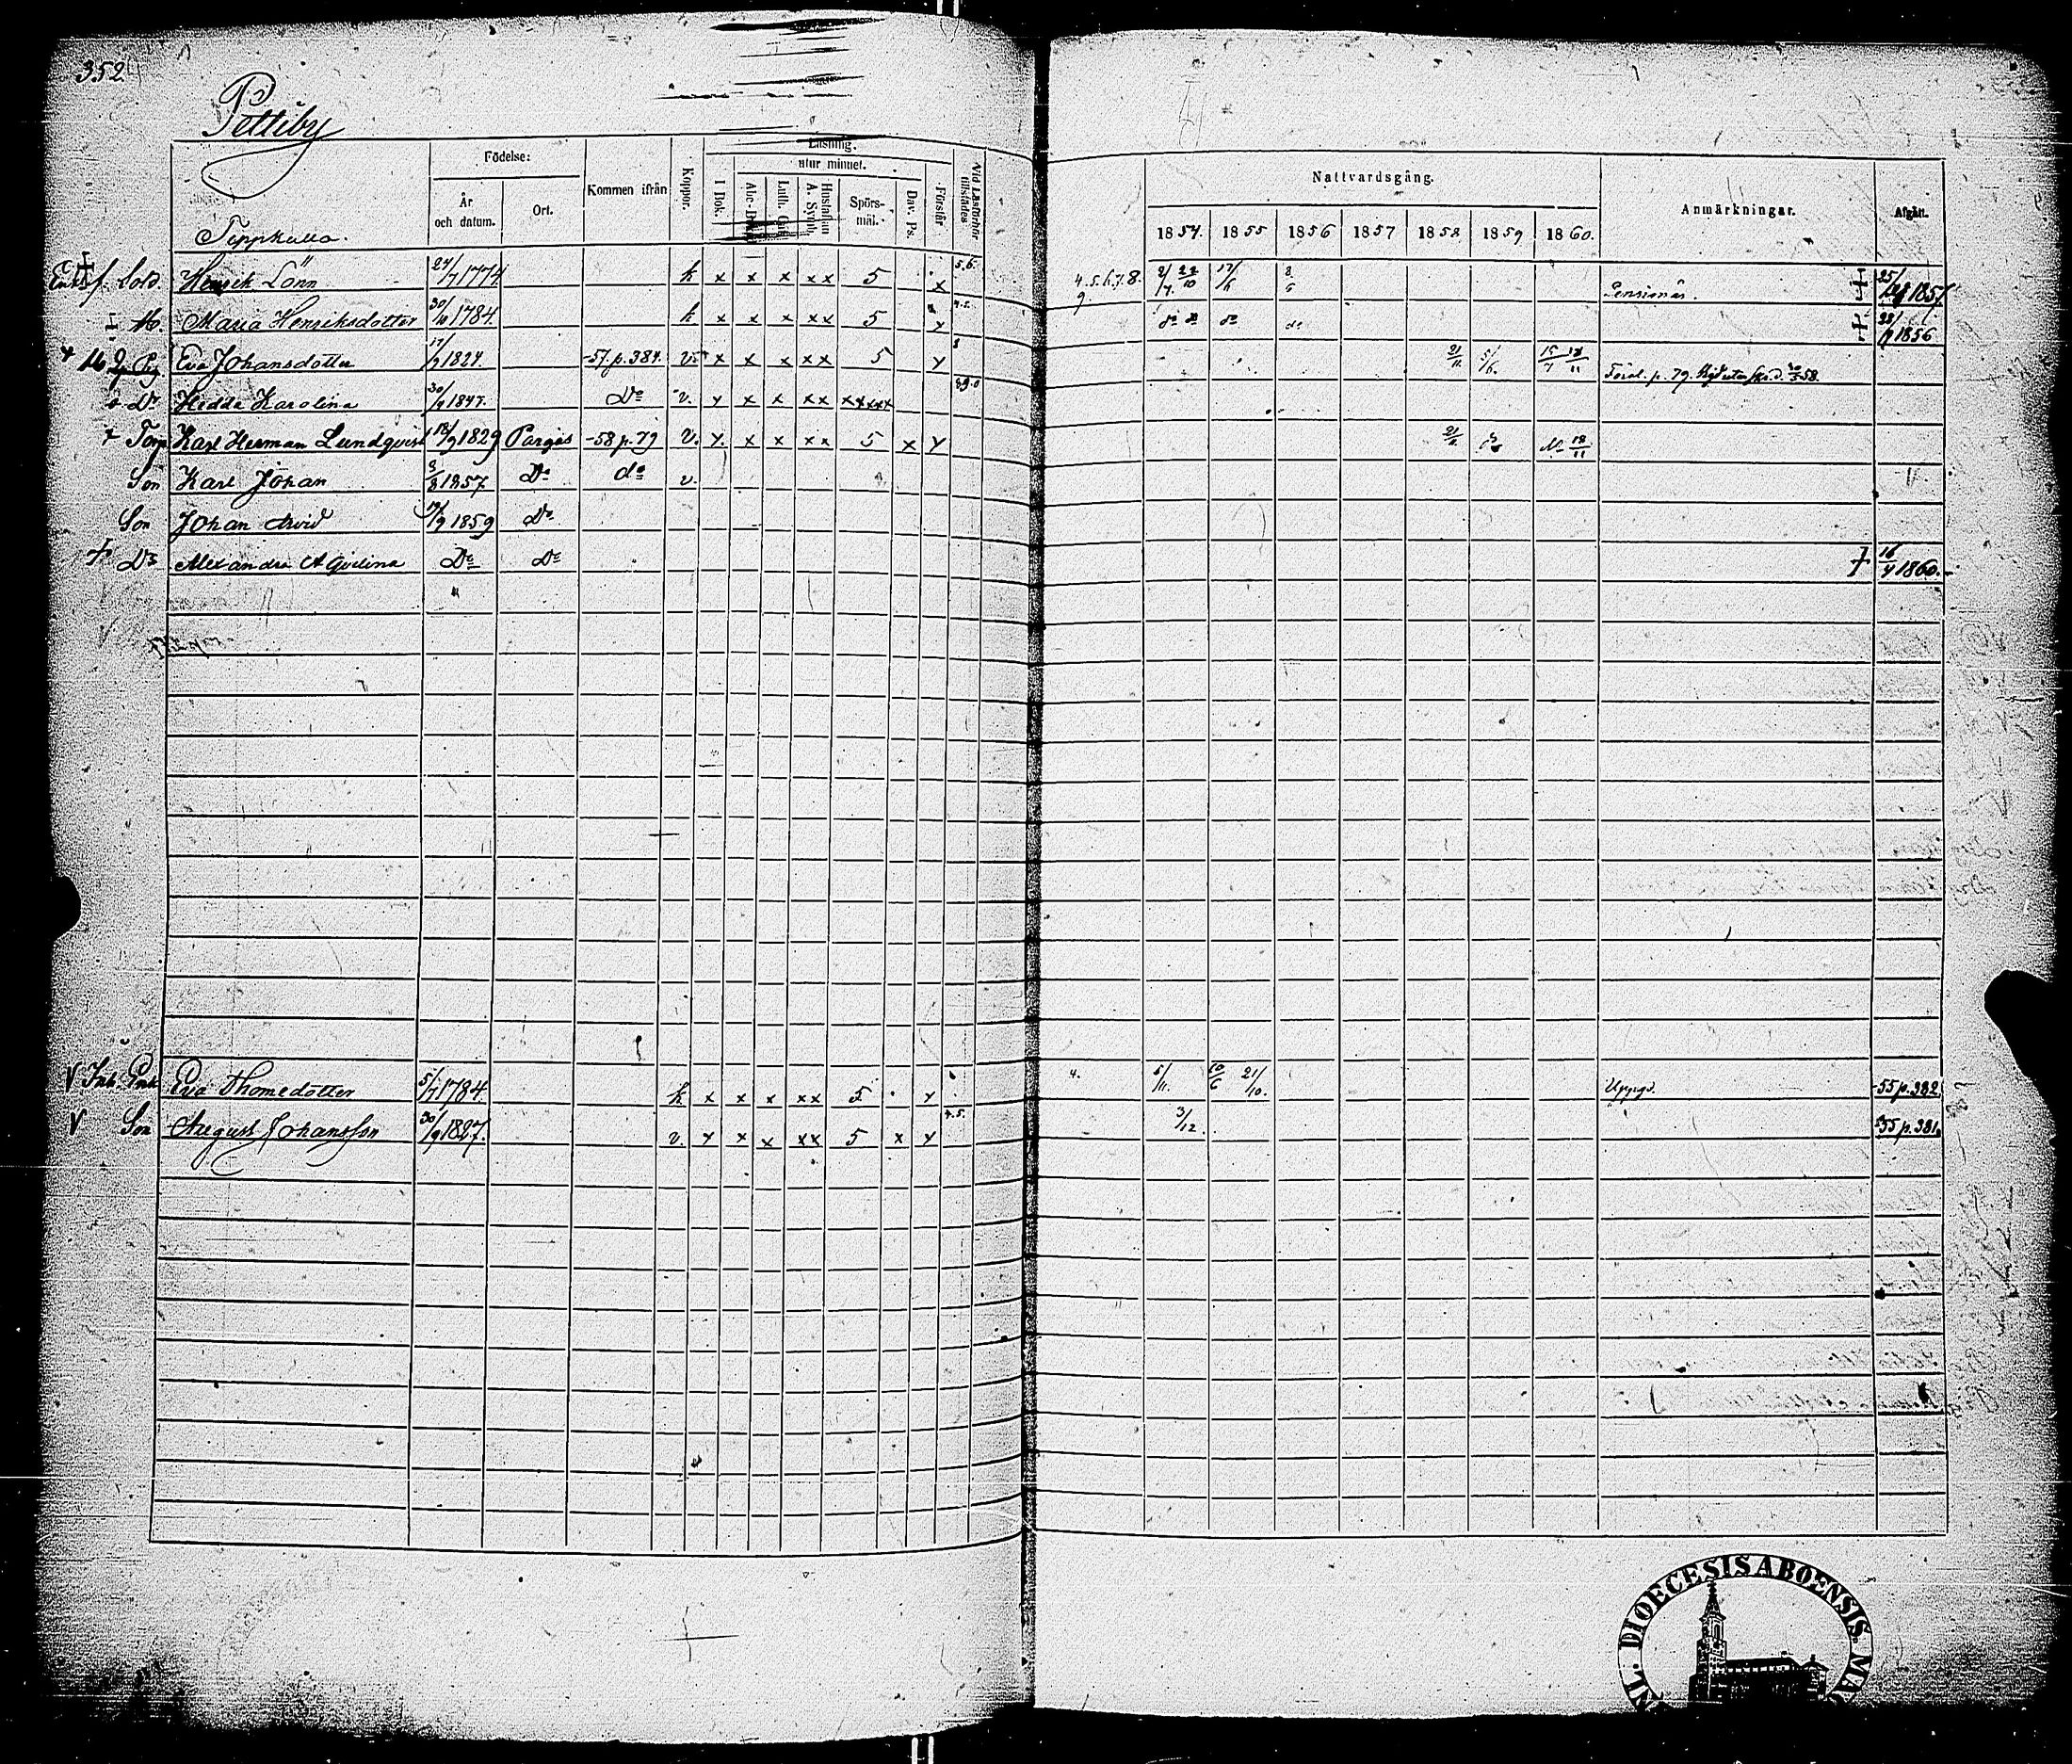 352
Pettiby
Födelse:
Kommen ifrån
Koppor.
Läsning.
utur minnet.
Vid Läsförhör tillstädes
År och datum.
Ort.
I Bok.
Abc-Bok
Luth. Cat.
Hustaflan A. Symb.
Spörs-mål.
Dav. Ps.
Förstår
Nattvardsgång.
Anmärkningar.
Afgått.
Tippkulla.
1854. 1855 1856 1857 1858 1859 1860.
f. Sold. Henrik Lönn 24/7 1774 k x x x xx 5 x 5.6. 4.5.6.7.8. 9 Pensionär. 25/ 1857
Maria Henriksdotter 30/10 1784. k x x x xx 5 x 4.5. do do do do 1856
Eva Johansdotter 17/ 1824. -57. p. 384. v. x x x xx 5 x 8 21/11 15/7 18/11 p. 79. 58.
Dr Hedda Karolina 30/9 1847. Do v. x x x xx xxxxx 8.9.0
Torp Karl Herman Lundqvist 18/9 1829 Pargas -58 p. 79 v. x x x xx 5 x x 21/11 18/11
Son Karl Johan 3/3 1857 Do do v.
Son Johan Arvid 17/9 1859 Do
Dr Alexandra Do Do † 16/4 1860.
V Inh. Enk. Eva Thomedotter 5/7 1784. k x x x xx 5 x 4. 5/11. 10/6 21/10. Uppgs. -55 p. 382.
V Son August Johansson 30/9 1827. v. x x x xx 5 x x 4.5. 3/12. -55 p. 381.
DIOECESIS ABOENSIS